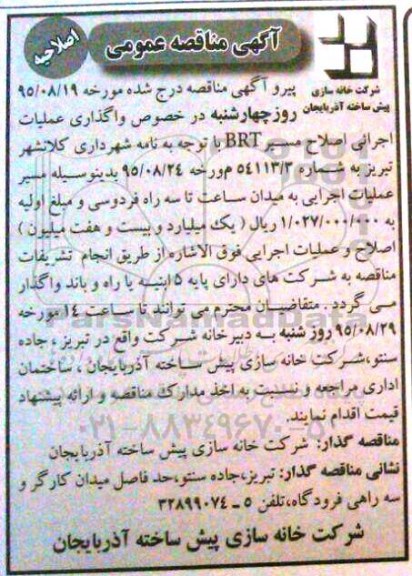 اصلاحیه
آگهی مناقصه عمومی
شرکت خانه سازی
پیش ساخته آذربایجان
پیرو آگهی مناقصه درج شده مورخه ۹۵/۰۸/۱۹
روز چهارشنبه در خصوص واگذاری عملیات
اجرائی اصلاح مسیر BRT با توجه به نامه شهرداری کلانشهر
تبریز به شماره ۵۴۱۱۳/۲ مورخه ۹۵/۰۸/۲۴ بدینوسیله مسیر
عملیات اجرایی به میدان ساعت تا سه راه فردوسی و مبلغ اولیه
به ۱/۰۲۷/۰۰۰/۰۰۰ ریال ( یک میلیارد و بیست و هفت میلیون )
اصلاح و عملیات اجرایی فوق الاشاره از طریق انجام تشریفات
مناقصه به شرکت های دارای پایه ۵ ابنیه یا راه و باند واگذار
می گردد . متقاضیان محترم می توانند تا ساعت ۱۴ مورخه
۹۵/۰۸/۲۹ روز شنبه به دبیرخانه شرکت واقع در تبریز ، جاده
سنتو،شرکت خانه سازی پیش ساخته آذربایجان ، ساختمان
اداری مراجعه و نسبت به اخذ مدارک مناقصه و ارائه پیشنهاد
قیمت اقدام نمایند.
مناقصه گذار: شرکت خانه سازی پیش ساخته آذربایجان
نشانی مناقصه گذار: تبریز،جاده سنتو،حد فاصل میدان کارگر و
سه راهی فرودگاه،تلفن ۵ ـ ۳۲۸۹۹۰۷۴
شرکت خانه سازی پیش ساخته آذربایجان
ParsNamadData
۰۲۱-۸۸۳۴۹۶۷۰-۵